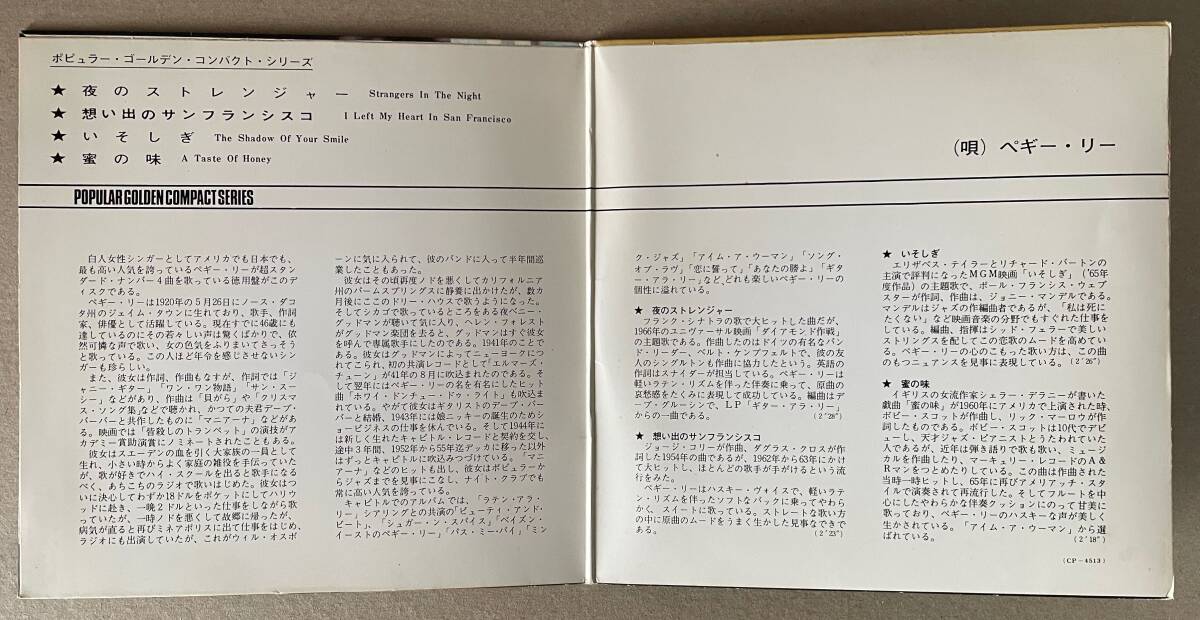 ポピュラー・ゴールデン・コンパクト・シリーズ
★ 夜のストレンジャー Strangers In The Night
★ 想い出のサンフランシスコ I Left My Heart In San Francisco
★ いそしぎ The Shadow Of Your Smile
★ 蜜の味 A Taste Of Honey
(唄) ペギー・リー
POPULAR GOLDEN COMPACT SERIES
白人女性シンガーとしてアメリカでも日本でも、
最も高い人気を誇っているペギー・リーが超スタン
ダード・ナンバー4曲を歌っている徳用盤がこのデ
ィスクである。
ペギー・リーは1920年の5月26日にノース・ダコ
タ州のジェイム・タウンに生れており、歌手、作詞
家、俳優として活躍している。現在すでに46歳にも
達しているのにその若々しい声は驚くばかりで、依
然可憐な声で歌い、女の色気をふりまいてさっそう
と歌っている。この人ほど年令を感じさせないシン
ガーも珍らしい。
また、彼女は作詞、作曲もなすが、作詞では「ジ
ャニー・ギター」、「ワン・ワン物語」「サン・スー
シー」などがあり、作曲は「貝がら」や「クリスマ
ス・ソング集」などで聴かれ、かつての夫君デーブ・
バーバーと共作したものに「マニアーナ」などがあ
る。映画では「皆殺しのトランペット」の演技がア
カデミー賞助演賞にノミネートされたこともある。
彼女はスエーデンの血を引く大家族の一員として
生れ、小さい時からよく家庭の雑役を手伝っていた
が、歌が好きでハイ・スクールを出ると歌手になる
べく、あちこちのラジオで歌いはじめた。彼女はつ
いに決心してわずか18ドルをポケットにしてハリウ
ッドに赴き、一晩2ドルといった仕事をしながら歌
っていたが、一時ノドを悪くして故郷に帰ったが、
病気が直ると再びミネアポリスに出て仕事をはじめ、
ラジオにも出演していたが、これがウィル・オスボ
ーンに気に入られて、彼のバンドに入って半年間巡
業したこともあった。
彼女はその頃再度ノドを悪くしてカリフォルニア
州のパームスプリングスに静養に出かけたが、数カ
月後にここのドリー・ハウスで歌うようになった。
そしてシカゴで歌っているところをある夜ベニー・
グッドマンが聴いて気に入り、ヘレン・フォレスト
がグッドマン楽団を去ると、グッドマンはすぐ彼女
を呼んで専属歌手にしたのである。1941年のことで
ある。彼女はグッドマンによってニューヨークにつ
れてこられ、初の共演レコードとして「エルマーズ・
チューン」が41年の8月に吹込まれたのである。そ
して翌年にはペギー・リーの名を有名にしたヒット
曲「ホワイ・ドンチュー・ドゥ・ライト」も吹込ま
れている。やがて彼女はギタリストのデーブ・バー
バーと結婚、1943年には娘ニッキーの誕生のためシ
ョービジネスの仕事を休んでいる。そして1944年に
は新しく生れたキャピトル・レコードと契約を交し、
途中3年間、1952年から55年迄デッカに移った以外
はずっとキャピトルに吹込みつづけている。「マニ
アーナ」などのヒットも出し、彼女はポピュラーか
らジャズまでを見事にこなし、ナイト・クラブでも
常に高い人気を誇っている。
キャピトルでのアルバムでは、「ラテン・アラ・
リー」シアリングとの共演の「ビューティ・アンド・
ビート」、「シュガー・ン・スパイス」「ベイズン・
イーストのペギー・リー」「パス・ミー・バイ」「ミン
ク・ジャズ」「アイム・ア・ウーマン」「ソング・
オブ・ラヴ」「恋に誓って」「あなたの勝よ」「ギタ
ー・アラ・リー」など、どれも楽しいペギー・リーの
個性に溢れている。
★ 夜のストレンジャー
フランク・シナトラの歌で大ヒットした曲だが、
1966年のユニヴァーサル映画「ダイアモンド作戦」
の主題歌である。作曲したのはドイツの有名なバン
ド・リーダー、ベルト・ケンプフェルトで、彼の友
人のシングルトンも作曲に協力したという。英語の
作詞はスナイダーが担当している。ペギー・リーは
軽いラテン・リズムを伴った伴奏に乗って、原曲の
哀愁感をたくみに表現して成功している。編曲はデ
ーブ・グルーシンで、LP「ギター・アラ・リー」
からの一曲である。 (2′28″)
★ 想い出のサンフランシスコ
ジョージ・コリーが作曲、ダグラス・クロスが作
詞した1954年の曲であるが、1962年から63年にかけ
て大ヒットし、ほとんどの歌手が手がけるという流
行をみた。
ペギー・リーはハスキー・ヴォイスで、軽いラテ
ン・リズムを伴ったソフトなバックに乗ってやわら
かく、スイートに歌っている。ストレートな歌い方
の中に原曲のムードをうまく生かした見事なできで
ある。 (2′23″)
★ いそしぎ
エリザベス・テイラーとリチャード・バートンの
主演で評判になったMGM映画「いそしぎ」('65年
度作品)の主題歌で、ポール・フランシス・ウェブ
スターが作詞、作曲は、ジョニー・マンデルである。
マンデルはジャズの作編曲者であるが、「私は死に
たくない」など映画音楽の分野でもすぐれた仕事を
している。編曲、指揮はシッド・フェラーで美しい
ストリングスを配してこの恋歌のムードを高めてい
る。ペギー・リーの心のこもった歌い方は、この曲
のもつニュアンスを見事に表現している。(2′26″)
★ 蜜の味
イギリスの女流作家シェラー・デラニーが書いた
戯曲「蜜の味」が1960年にアメリカで上演された時、
ボビー・スコットが作曲し、リック・マーロウが作
詞したものである。ボビー・スコットは10代でデビ
ューし、天才ジャズ・ピアニストとうたわれていた
人であるが、近年は弾き語りで歌も歌い、ミュージ
カルを作曲したり、マーキュリー・レコードのA&
Rマンをつとめたりしている。この曲は作曲された
当時一時ヒットし、65年に再びアメリアッチ・スタ
イルで演奏されて再流行した。そしてフルートを中
心にしたやわらかな伴奏クッションにのって甘美に
歌っており、ペギー・リーのハスキーな声が美しく
生かされている。「アイム・ア・ウーマン」から選
ばれている。 (2′18″)
(CP-4513)